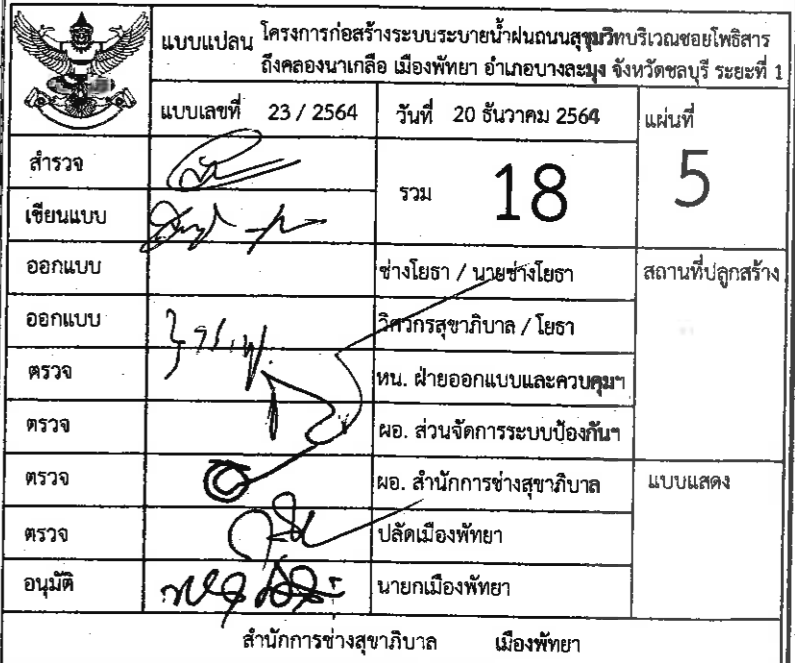 แบบแปลน โครงการก่อสร้างระบบระบายน้ำฝนถนนสุขุมวิทบริเวณซอยโพธิสาร
ถึงคลองนาเกลือ เมืองพัทยา อำเภอบางละมุง จังหวัดชลบุรี ระยะที่ 1
แบบเลขที่ 23 / 2564 วันที่ 20 ธันวาคม 2564 แผ่นที่
สำรวจ รวม 18 5
เขียนแบบ
ออกแบบ ช่างโยธา / นายช่างโยธา สถานที่ปลูกสร้าง
ออกแบบ วิศวกรสุขาภิบาล / โยธา
ตรวจ หน. ฝ่ายออกแบบและควบคุมฯ
ตรวจ ผอ. ส่วนจัดการระบบป้องกันฯ
ตรวจ ผอ. สำนักการช่างสุขาภิบาล แบบแสดง
ตรวจ ปลัดเมืองพัทยา
อนุมัติ นายกเมืองพัทยา
สำนักการช่างสุขาภิบาล เมืองพัทยา